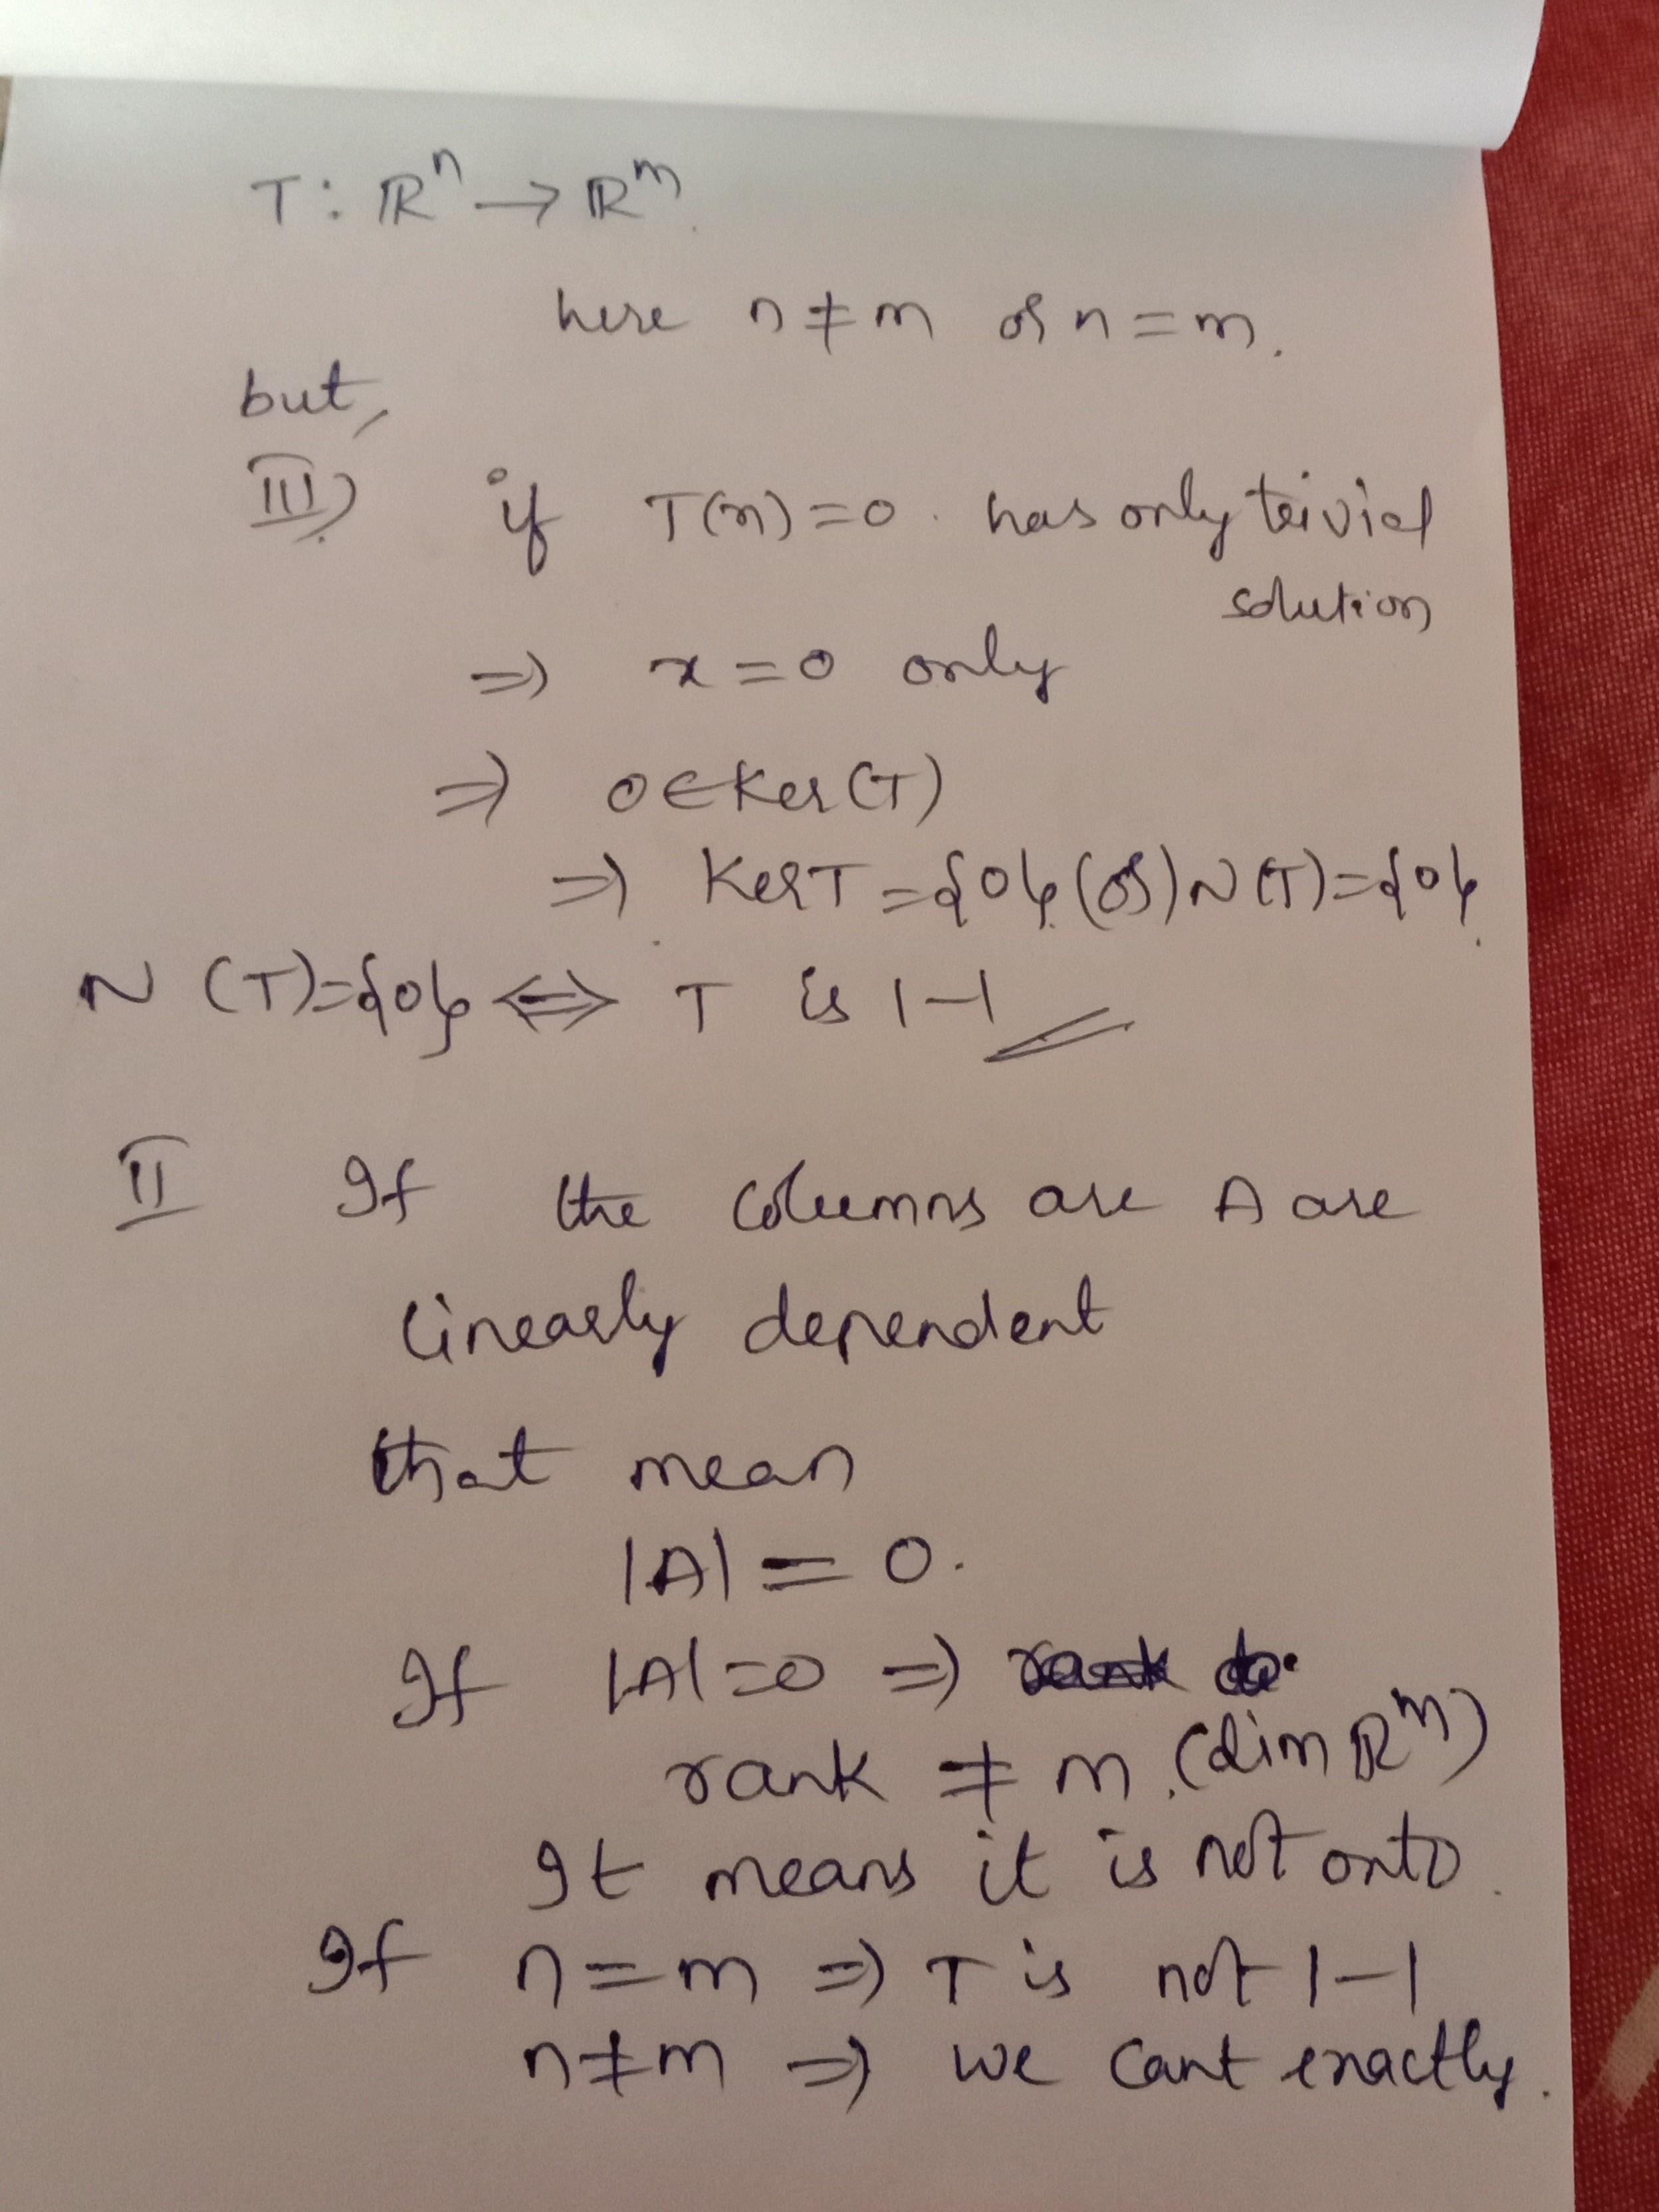 T: ℝⁿ → ℝᵐ.
here n ≠ m or n = m.
but,
III) if T(x) = 0. has only trivial
solution
⇒ x = 0 only
⇒ 0 ∈ Ker(T)
⇒ Ker T = {0} (or) N(T) = {0}.
N(T) = {0} ⇔ T is 1-1
II If the columns are A are
linearly dependent
that mean
|A| = 0.
If |A| = 0 ⇒
rank ≠ m. (dim ℝᵐ)
It means it is not onto.
If n = m ⇒ T is not 1-1
n ≠ m ⇒ we cant exactly.